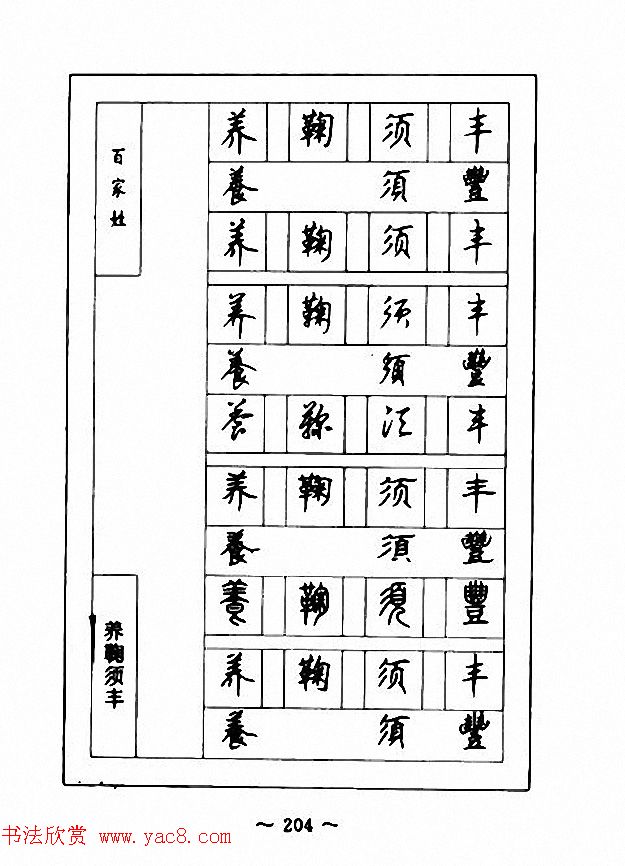 百家姓
养 鞠 须 丰
養 須 豐
养 鞠 须 丰
养 鞠 须 丰
養 須 豐
养 鞠 须 丰
养 鞠 须 丰
養 須 豐
養 鞠 須 豐
养 鞠 须 丰
養 須 豐
养鞠须丰
～ 204 ～
书法欣赏 www.yac8.com